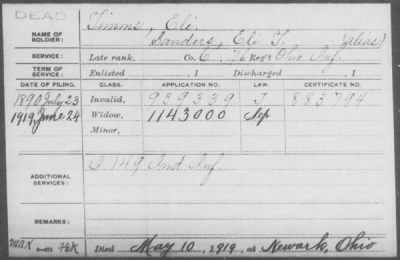 DEAD
NAME OF SOLDIER: Simms, Eli.
Sanders, Eli T. (alias)
SERVICE: Late rank, Co. C, 76 Reg't Ohio Inf.
TERM OF SERVICE: Enlisted , 1 Discharged , 1
DATE OF FILING. CLASS. APPLICATION NO. LAW. CERTIFICATE NO.
1890 July 23 Invalid, 939339 J 883794
1919 June 24 Widow, 1143000
Minor,
ADDITIONAL SERVICES: I 149 Ind Inf.
REMARKS:
Died May 10, 1919, at Newark, Ohio